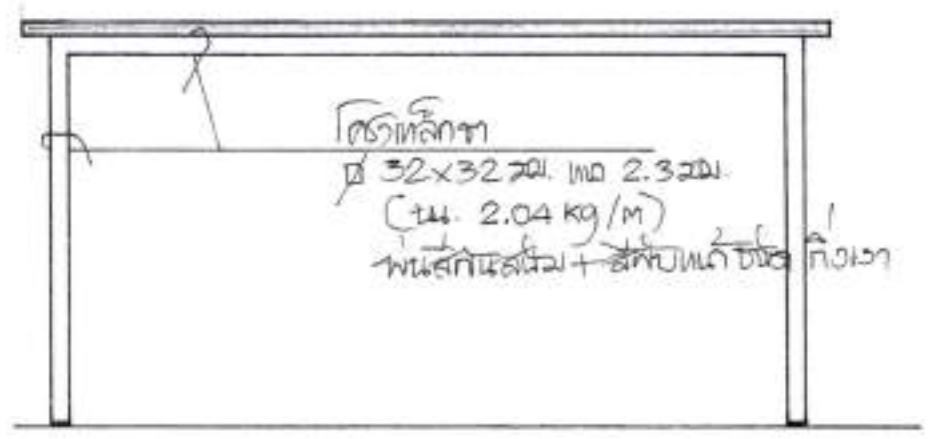 โครงเหล็กขา
32x32 มม. หนา 2.3 มม.
(นน. 2.04 kg/m)
พ่นสีกันสนิม + สีทับหน้า ชนิด กึ่งเงา